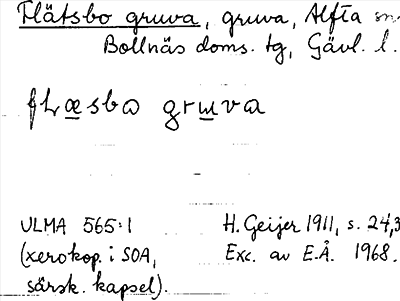 Flätsbo gruva, gruva, Alfta sn
Bollnäs doms. tg, Gävl. l.
flæsba gruva
ULMA 565:1 H. Geijer 1911, s. 24,3
(xerokop. i SOA, Exc. av E.Å. 1968.
särsk. kapsel).